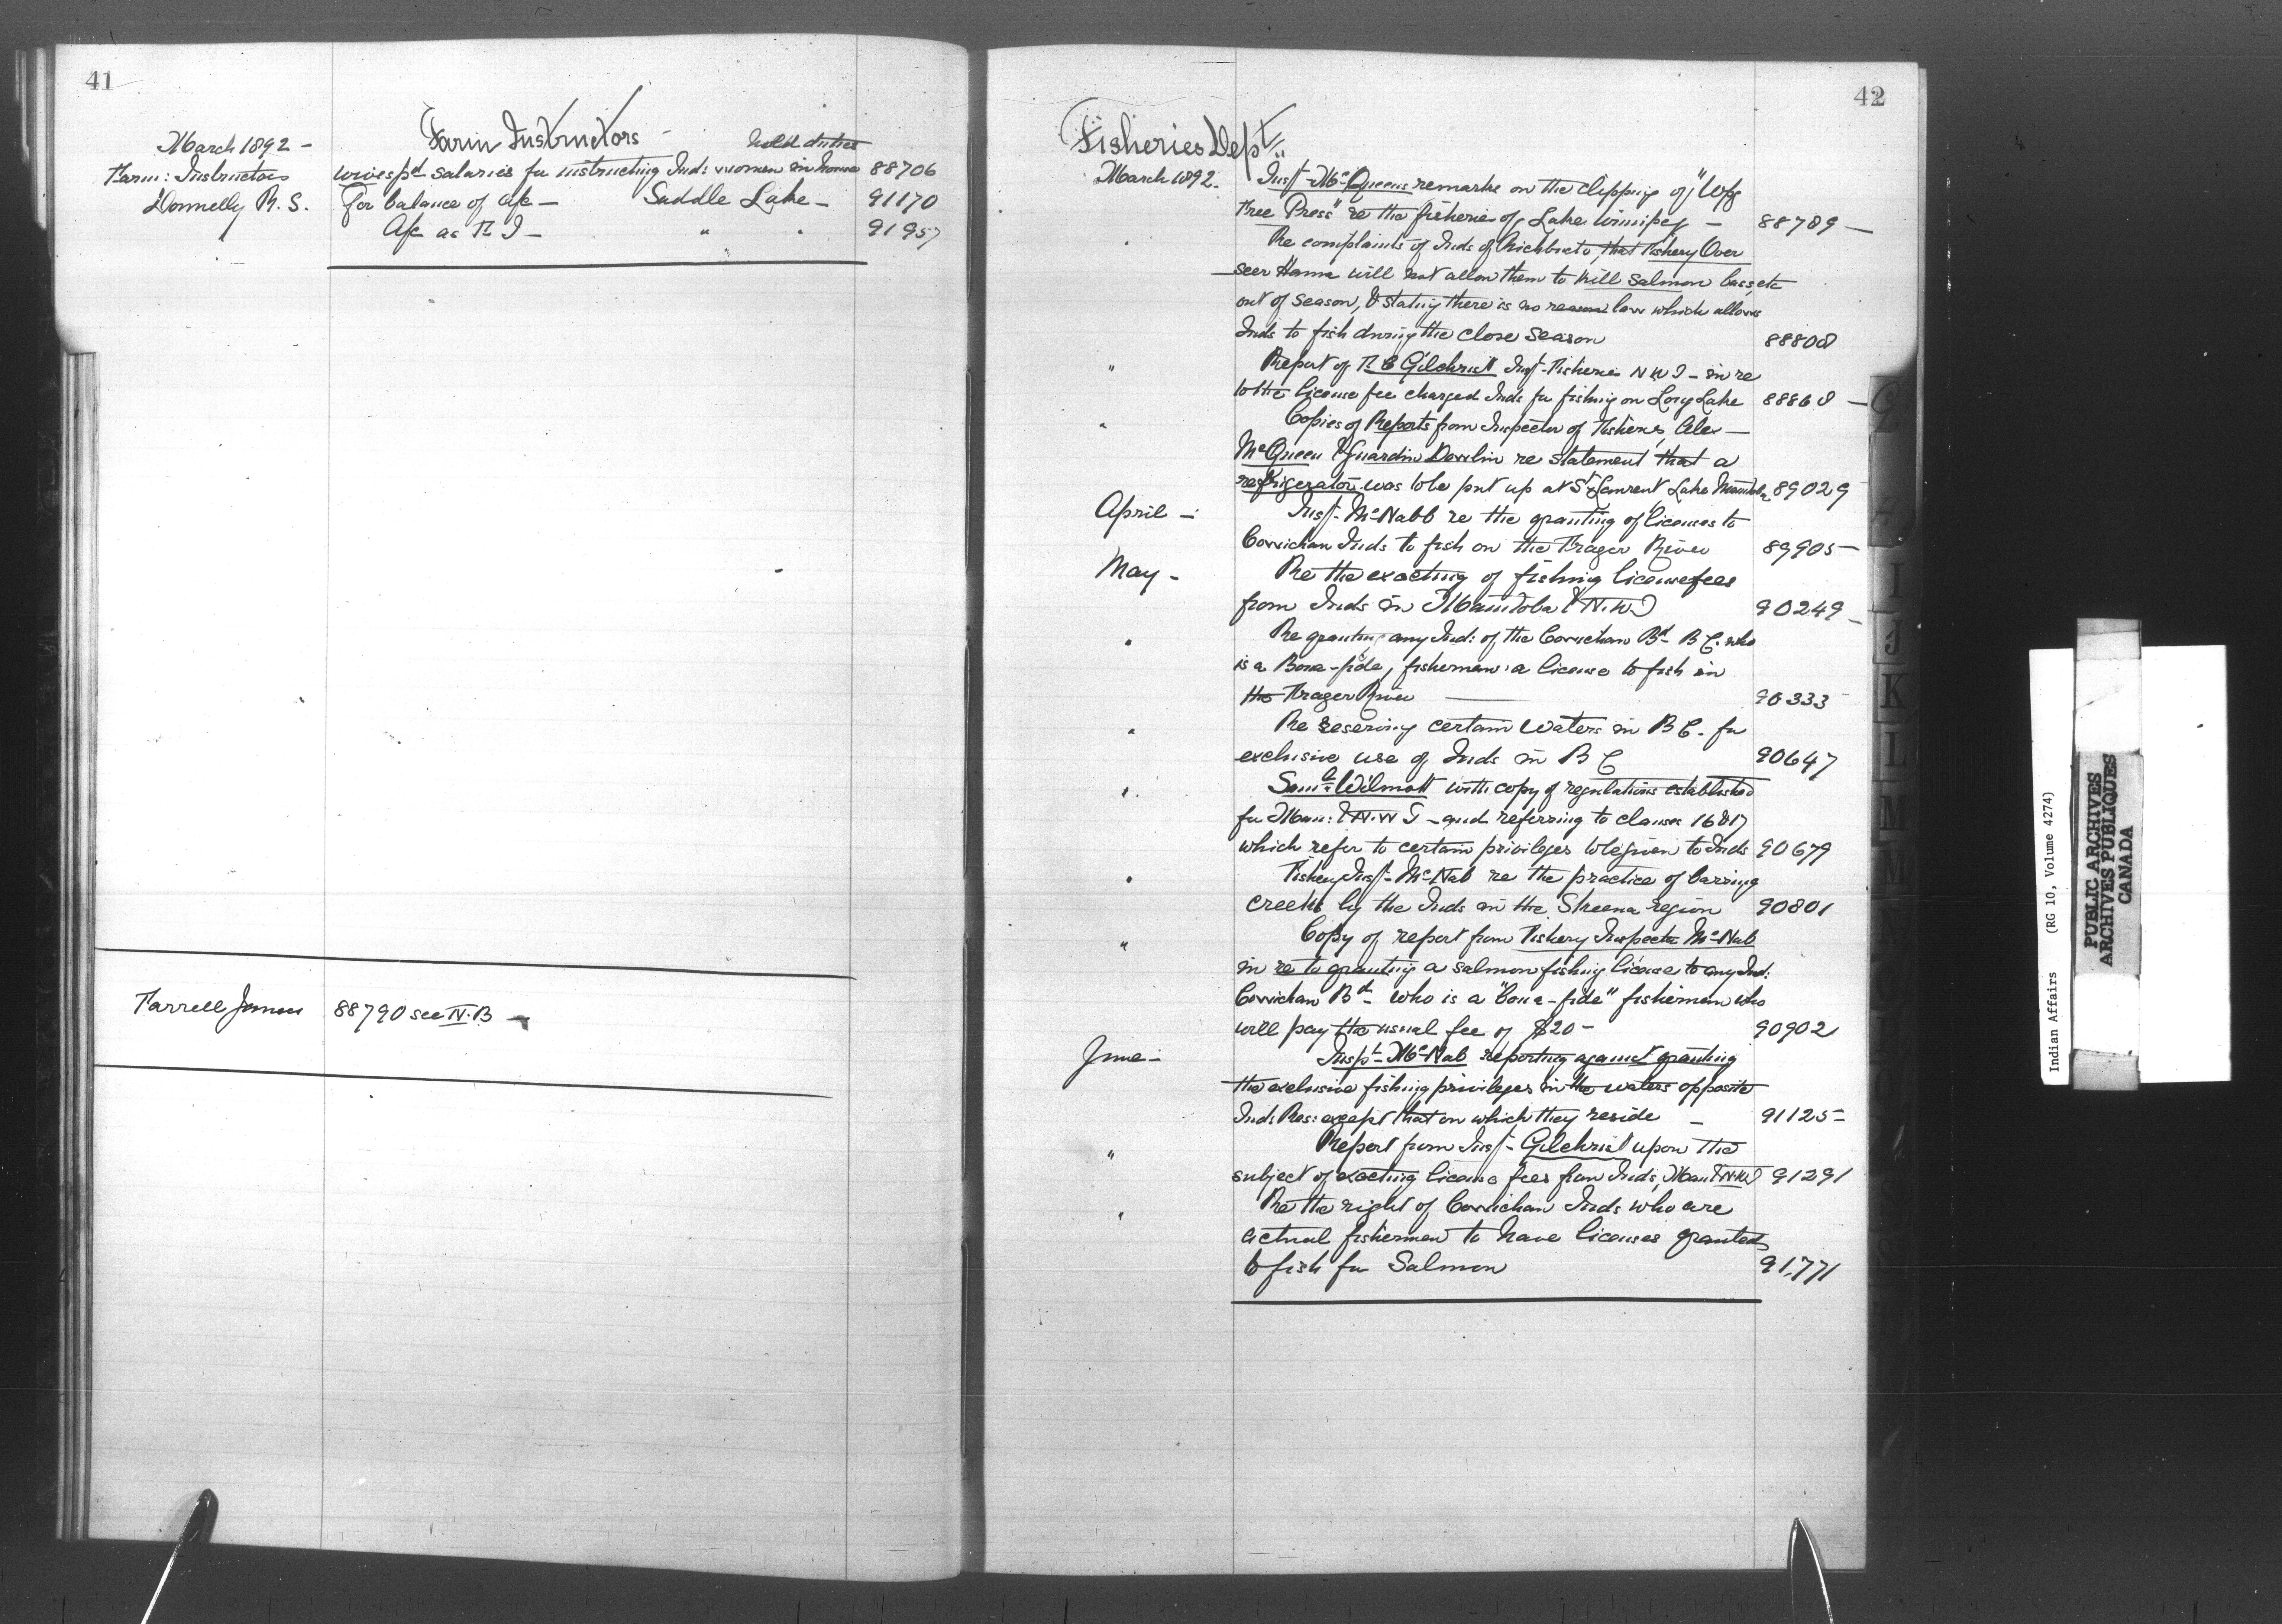 41
Farm Instructors -
March 1892 -
hold duties
Farm: Instructors wives pd salaries for instructing Ind: women in house 88706
Donnelly R. S. For balance of a/c - Saddle Lake - 91170
" A/c as F I - " " 91957
Farrell James 88790 see N.B -
42
Fisheries Dept
March 1892. Insp- McQueens remarks on the clipping of "Wpg
Free Press" re the fisheries of Lake Winnipeg - 88789 -
" Re complaints of Inds of Richibucto, that Fishery Over
seer Hama will not allow them to kill salmon bass, etc
out of season, & stating there is no reason law which allows
Inds to fish during the close season 88808
" Report of F C Gilchrist Insp- Fisheries N W T - in re
to the license fee charged Inds for fishing on Long Lake 88868 -
" Copies of Reports from Inspector of Fisheries, Alex -
McQueen & Guardian Devlin re statement that a
refrigerator was to be put up at St Laurent Lake Manitoba 89029
April - Insp- McNabb re the granting of licenses to
Cowichan Inds to fish on the Frazer River 89905 -
May - Re the exacting of fishing license fees
from Inds in Manitoba & N.W.T 90249 -
" Re granting any Ind: of the Cowichan Bd- B C. who
is a Bona-fide, fisherman a license to fish in
the Frazer River 90333 -
" Re reserving certain waters in B C. for
exclusive use of Inds in B C 90647
" Saml Wilmott with copy of regulations established
for Man: & N.W T - and referring to clauses 16 & 17
which refer to certain privileges to be given to Inds 90679
" Fishery Insp- McNab re the practice of barring
creeks by the Inds in the Skeena region 90801
" Copy of report from Fishery Inspector McNab
in re to granting a salmon fishing license to any Ind:
Cowichan Bd- who is a "bona-fide" fisherman who
will pay the usual fee of $20 - 90902
June - Inspt- McNab reporting against granting
the exclusive fishing privileges in the waters opposite
Inds Res: except that on which they reside - 91125 -
" Report from Insp- Gilchrist upon the
subject of exacting license fees from Inds, Man & N.W.T 91291
" Re the right of Cowichan Inds who are
actual fishermen to have licenses granted
to fish for Salmon 91,771
I
J
K
L
M
M
Indian Affairs (RG 10, Volume 4274)
PUBLIC ARCHIVES
ARCHIVES PUBLIQUES
CANADA